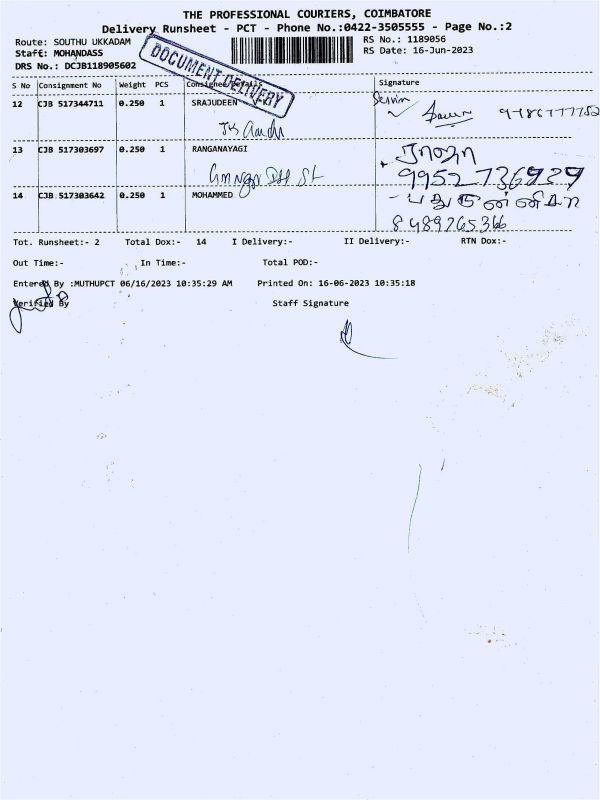 THE PROFESSIONAL COURIERS, COIMBATORE
Delivery Runsheet - PCT - Phone No.:0422-3505555 - Page No.:2
Route: SOUTHU UKKADAM
RS No.: 1189056
Staff: MOHANDASS
RS Date: 16-Jun-2023
DRS No.: DCJB118905602
DOCUMENT DELIVERY
S No Consignment No Weight PCS Consignee Details Signature
12 CJB 517344711 0.250 1 SRAJUDEEN
13 CJB 517303697 0.250 1 RANGANAYAGI
9952736929
14 CJB 517303642 0.250 1 MOHAMMED
8489265366
Tot. Runsheet:- 2 Total Dox:- 14 I Delivery:- II Delivery:- RTN Dox:-
Out Time:- In Time:- Total POD:-
Entered By :MUTHUPCT 06/16/2023 10:35:29 AM Printed On: 16-06-2023 10:35:18
Verified By Staff Signature